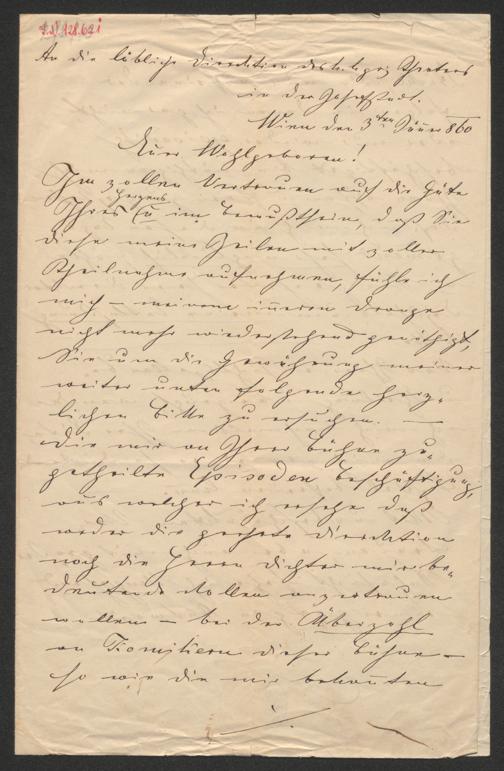 I.N. 128.621
An die löbliche Direcktion des k. k. priv. Theaters
in der Josefstadt.
Wien den 3ten Jänner 860
Euer Wohlgeboren!
Im vollen Vertrauen auf die Güte
Ihres Herzens u im Bewußtsein, daß Sie
diese meine Zeilen mit voller
Theilnahme aufnehmen, fühle ich
mich – meinem inneren Drange
nicht mehr wiederstehend genöthigt,
Sie um die Gewährung meiner
weiter unten folgende herz-
lichen Bitte zu ersuchen. —
Die mir an Ihrer Bühne zu-
getheilte Episoden Beschäftigung,
aus welcher ich ersehe daß
weder die geehrte Direcktion
noch die Herrn Dichter mir be-
deutende Rollen anvertrauen
wollen – bei der Überzahl
an Komikern dieser Bühne –
so wie die mir bekannten